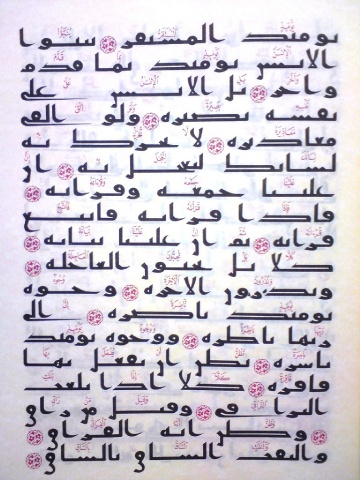 يومئذ المستقر ۝ ينبوا
الانسن يومئذ بما قدم
واخر ۝ بل الانسن على
نفسه بصيره ۝ ولو القى
معاذيره ۝ لا تحرك به
لسانك لتعجل به ۝ ان
علينا جمعه وقرانه ۝
فاذا قرانه فاتبع
قرانه ۝ ثم ان علينا بيانه ۝
كلا بل تحبون العاجله ۝
وتذرون الاخره ۝ وجوه
يومئذ ناضره ۝ الى
ربها ناظره ۝ ووجوه يومئذ
باسره ۝ تظن ان يفعل بها
فاقره ۝ كلا اذا بلغت
التراقى ۝ وقيل من راق
۝ وظن انه الفراق ۝
والتفت الساق بالساق ۝